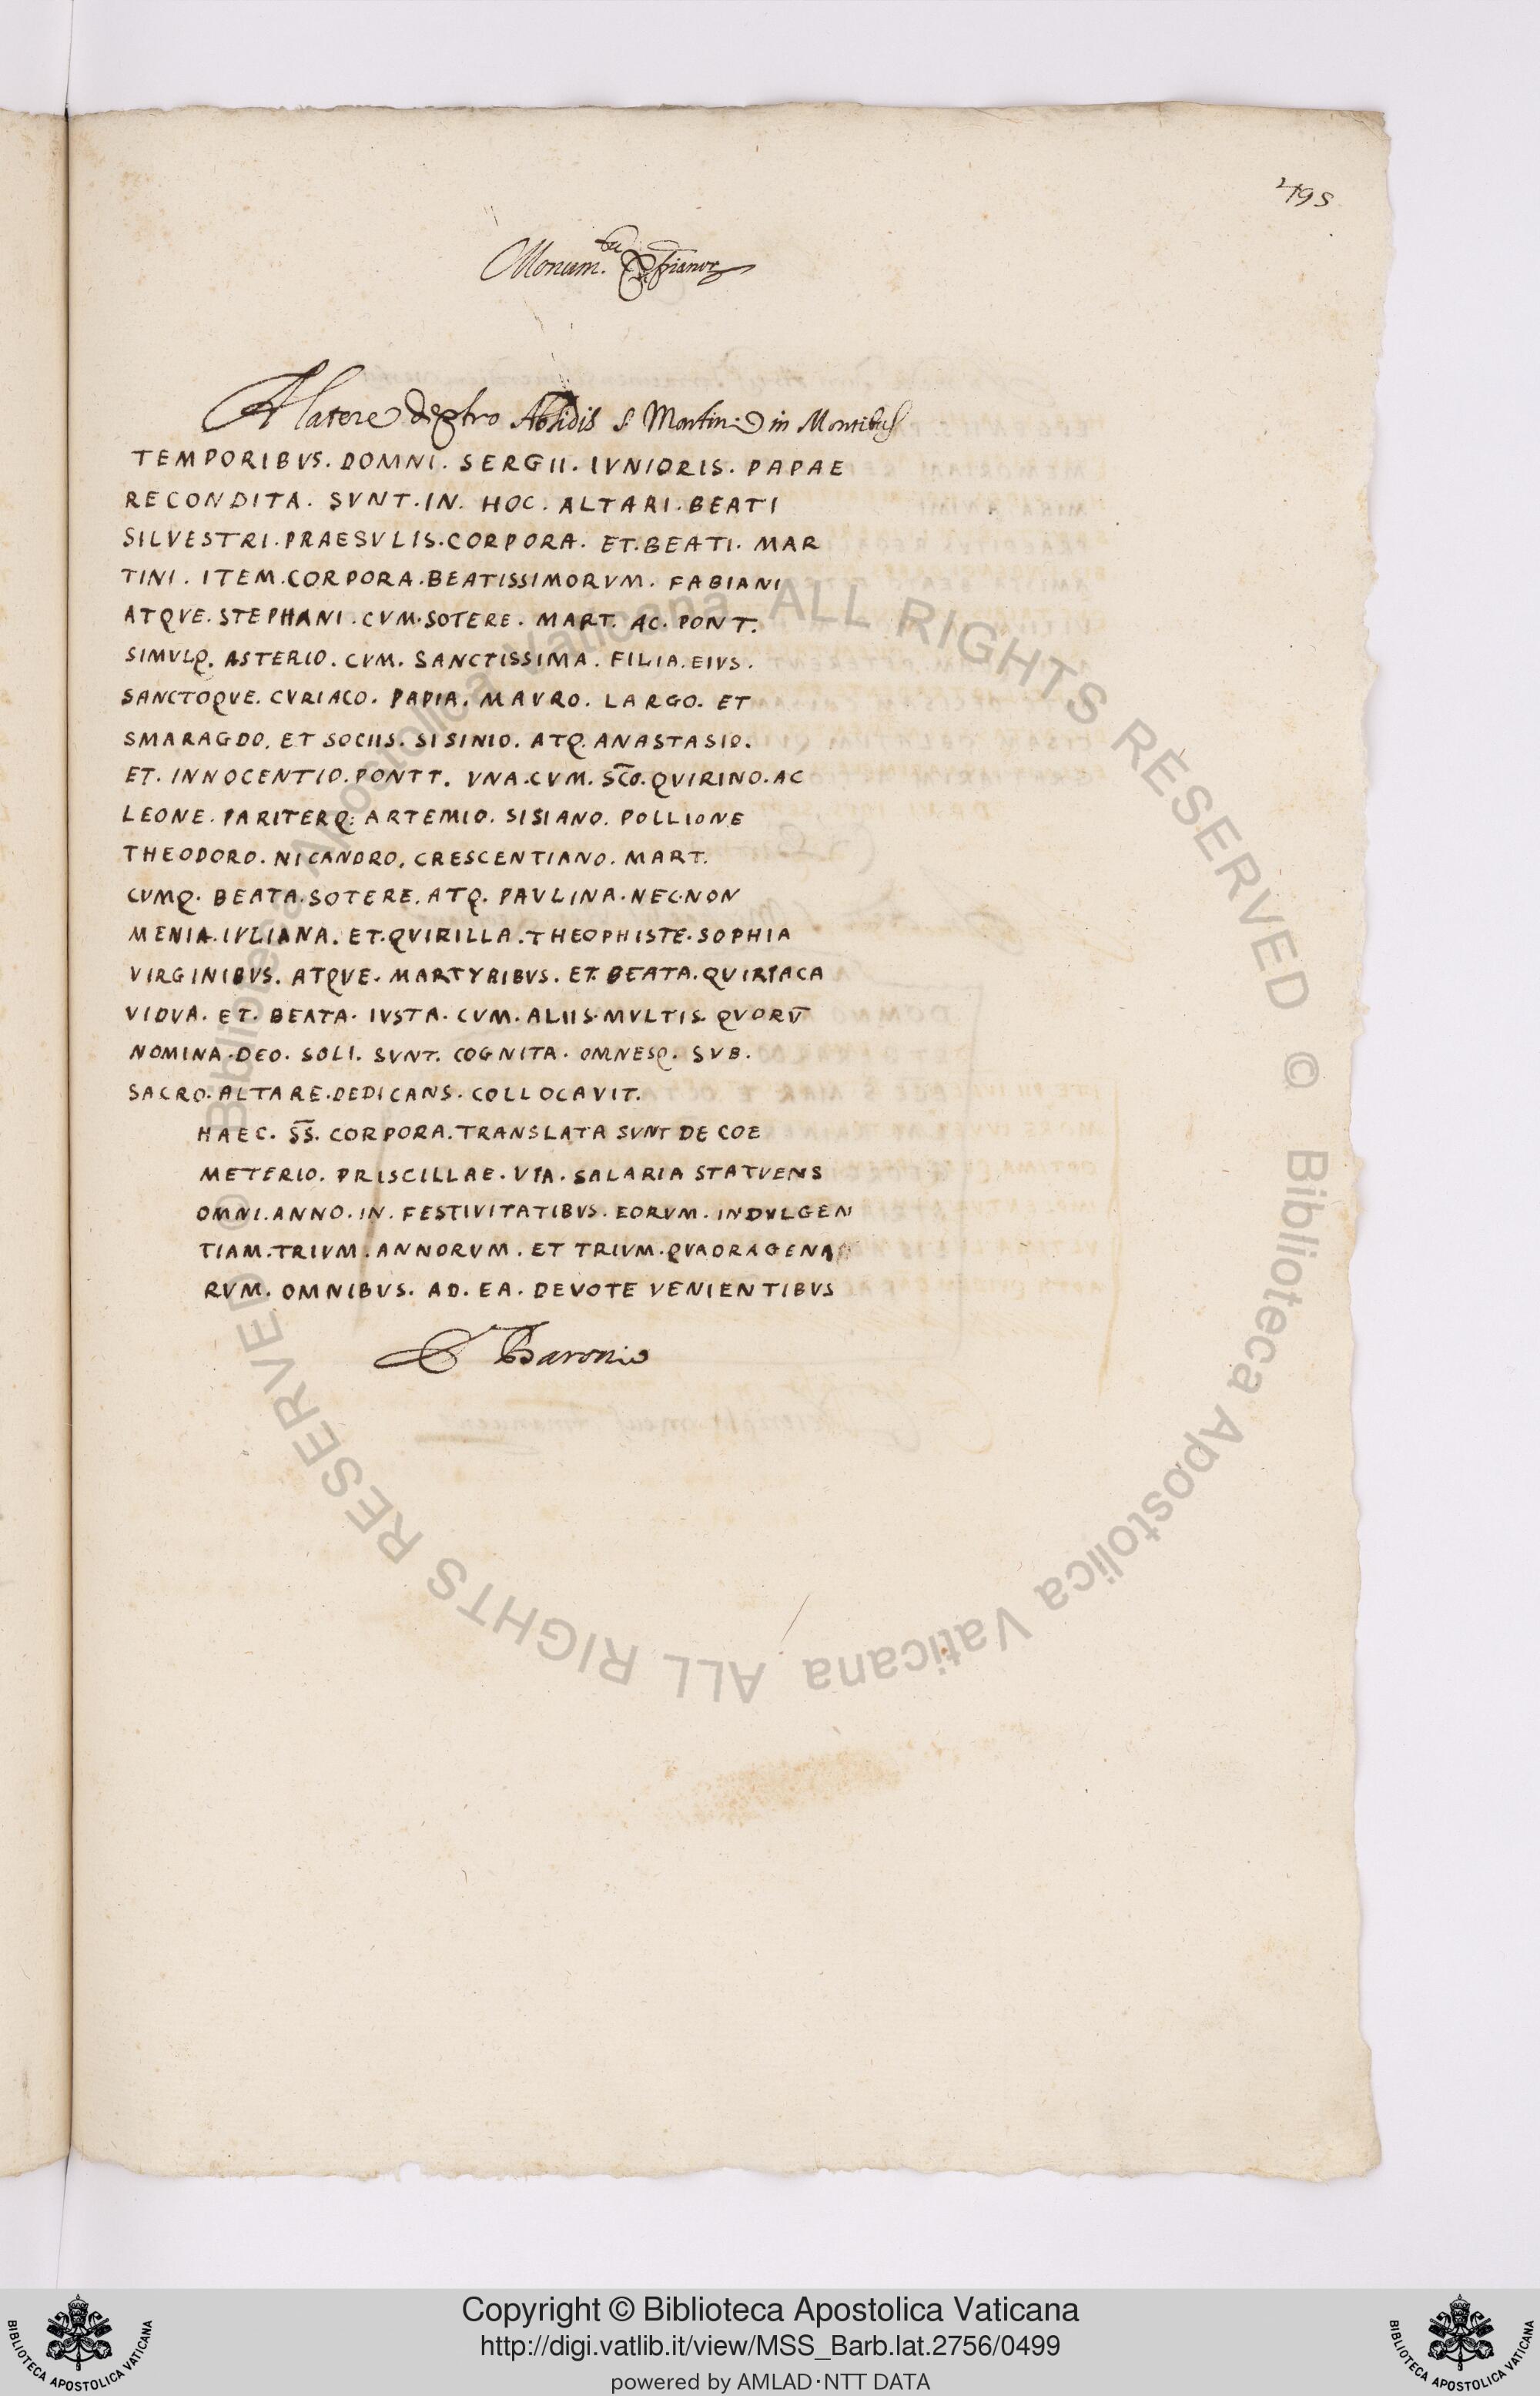 495
A latere dextro Absidis S. Martini in Montibus
TEMPORIBVS. DOMNI. SERGII. IVNIORIS. PAPAE
RECONDITA. SVNT. IN. HOC. ALTARI. BEATI
SILVESTRI. PRAESVLIS. CORPORA. ET. BEATI. MAR
TINI. ITEM. CORPORA. BEATISSIMORVM. FABIANI
ATQVE. STEPHANI. CVM. SOTERE. MART. AC. PONT.
SIMVLQ. ASTERIO. CVM. SANCTISSIMA. FILIA. EIVS.
SANCTOQVE. CVRIACO. PAPIA. MAVRO. LARGO. ET
SMARAGDO. ET SOCIIS. SISINIO. ATQ. ANASTASIO.
ET. INNOCENTIO. PONTT. VNA. CVM. SC̄O. QVIRINO. AC
LEONE. PARITERQ: ARTEMIO. SISIANO. POLLIONE
THEODORO. NICANDRO. CRESCENTIANO. MART.
CVMQ. BEATA. SOTERE. ATQ. PAVLINA. NEC. NON
MENIA. IVLIANA. ET. QVIRILLA. THEOPHISTE. SOPHIA
VIRGINIBVS. ATQVE. MARTYRIBVS. ET. BEATA. QVIRIACA
VIDVA. ET. BEATA. IVSTA. CVM. ALIIS. MVLTIS. QVORV̄
NOMINA. DEO. SOLI. SVNT. COGNITA. OMNESQ. SVB.
SACRO. ALTARE. DEDICANS. COLLOCAVIT.
HAEC. S̄S̄. CORPORA. TRANSLATA SVNT DE COE
METERIO. PRISCILLAE. VIA. SALARIA STATVENS
OMNI. ANNO. IN. FESTIVITATIBVS. EORVM. INDVLGEN
TIAM. TRIVM. ANNORVM. ET TRIVM. QVADRAGENA
RVM. OMNIBVS. AD. EA. DEVOTE VENIENTIBVS
Baronio
© Biblioteca Apostolica Vaticana ALL RIGHTS RESERVED © Biblioteca Apostolica Vaticana ALL RIGHTS RESERVED
Copyright © Biblioteca Apostolica Vaticana
http://digi.vatlib.it/view/MSS_Barb.lat.2756/0499
powered by AMLAD·NTT DATA
BIBLIOTECA APOSTOLICA VATICANA
BIBLIOTECA APOSTOLICA VATICANA